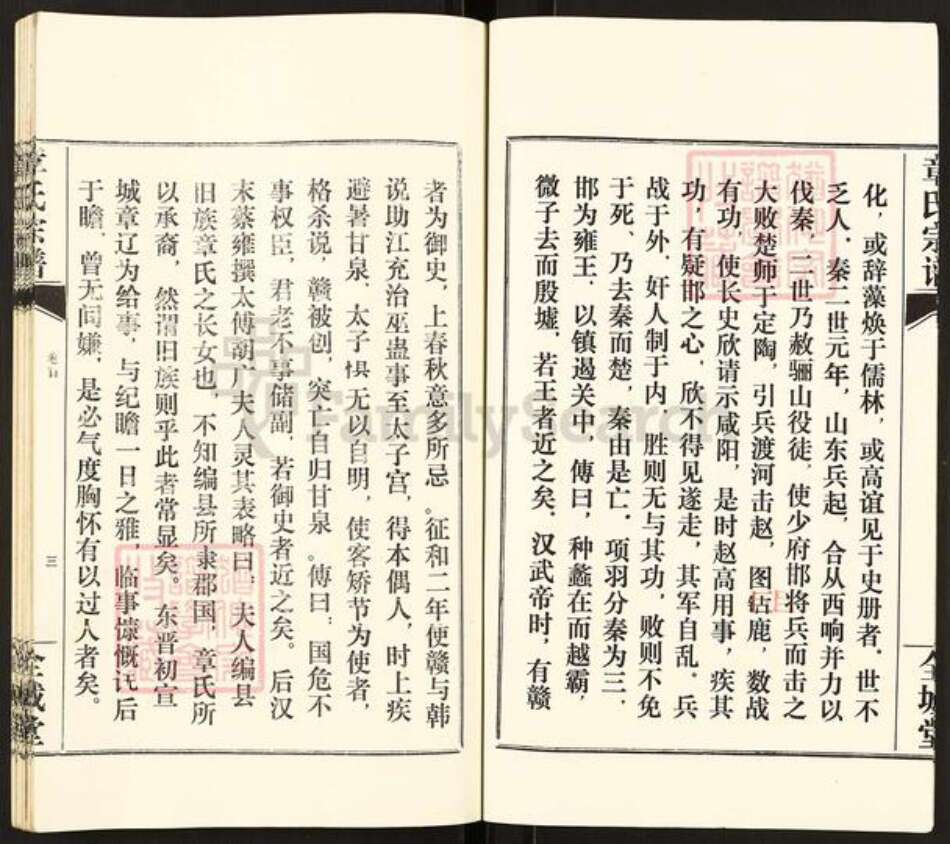 章氏宗谱
全城堂
化，或辞藻焕于儒林，或高谊见于史册者．世不
乏人．秦二世元年，山东兵起，合从西响并力以
伐秦，二世乃赦骊山役徒，使少府邯将兵而击之
大败楚师于定陶，引兵渡河击赵，图钜鹿，数战
有功，使长史欣请示咸阳，是时赵高用事，疾其
功，有疑邯之心，欣不得见遂走，其军自乱．兵
战于外，奸人制于内，胜则无与其功，败则不免
于死、乃去秦而楚，秦由是亡．项羽分秦为三．
邯为雍王．以镇遏关中，傅曰，种蠡在而越霸，
微子去而殷墟，若王者近之矣．汉武帝时，有赣
者为御史，上春秋意多所忌。征和二年使赣与韩
说助江充治巫蛊事至太子宫，得本偶人，时上疾
避暑甘泉、太子惧无以自明，使客矫节为使者，
格杀说，赣被创，突亡自归甘泉。傅曰：国危不
事权臣，君老不事储副．若御史者近之矣。后汉
末蔡雍撰太傅胡广夫人灵其表略曰：夫人编县
旧族章氏之长女也，不知编县所隶郡国，章氏所
以承裔，然谓旧族则乎此者常显矣。东晋初宣
城章辽为给事，与纪瞻一日之雅，临事慷慨讬后
于瞻，曾无间嫌，是必气度胸怀有以过人者矣。
章氏宗谱
三
全城堂
FamilySearch